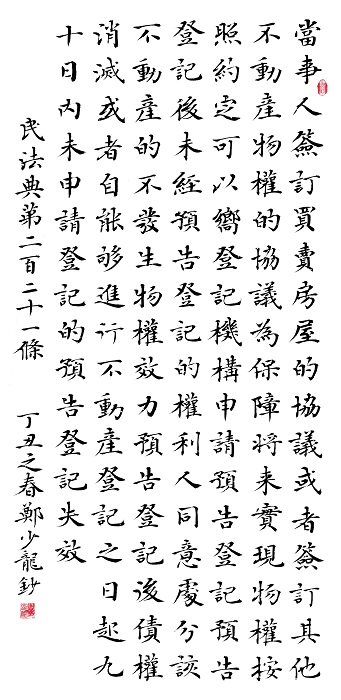 當事人簽訂買賣房屋的協議或者簽訂其他
不動產物權的協議為保障將来實現物權按
照約定可以嚮登記機構申請預告登記預告
登記後未經預告登記的權利人同意處分該
不動產的不發生物權效力預告登記後債權
消滅或者自能够進行不動產登記之日起九
十日内未申請登記的預告登記失效
民法典第二百二十一條 丁丑之春鄭少龍鈔